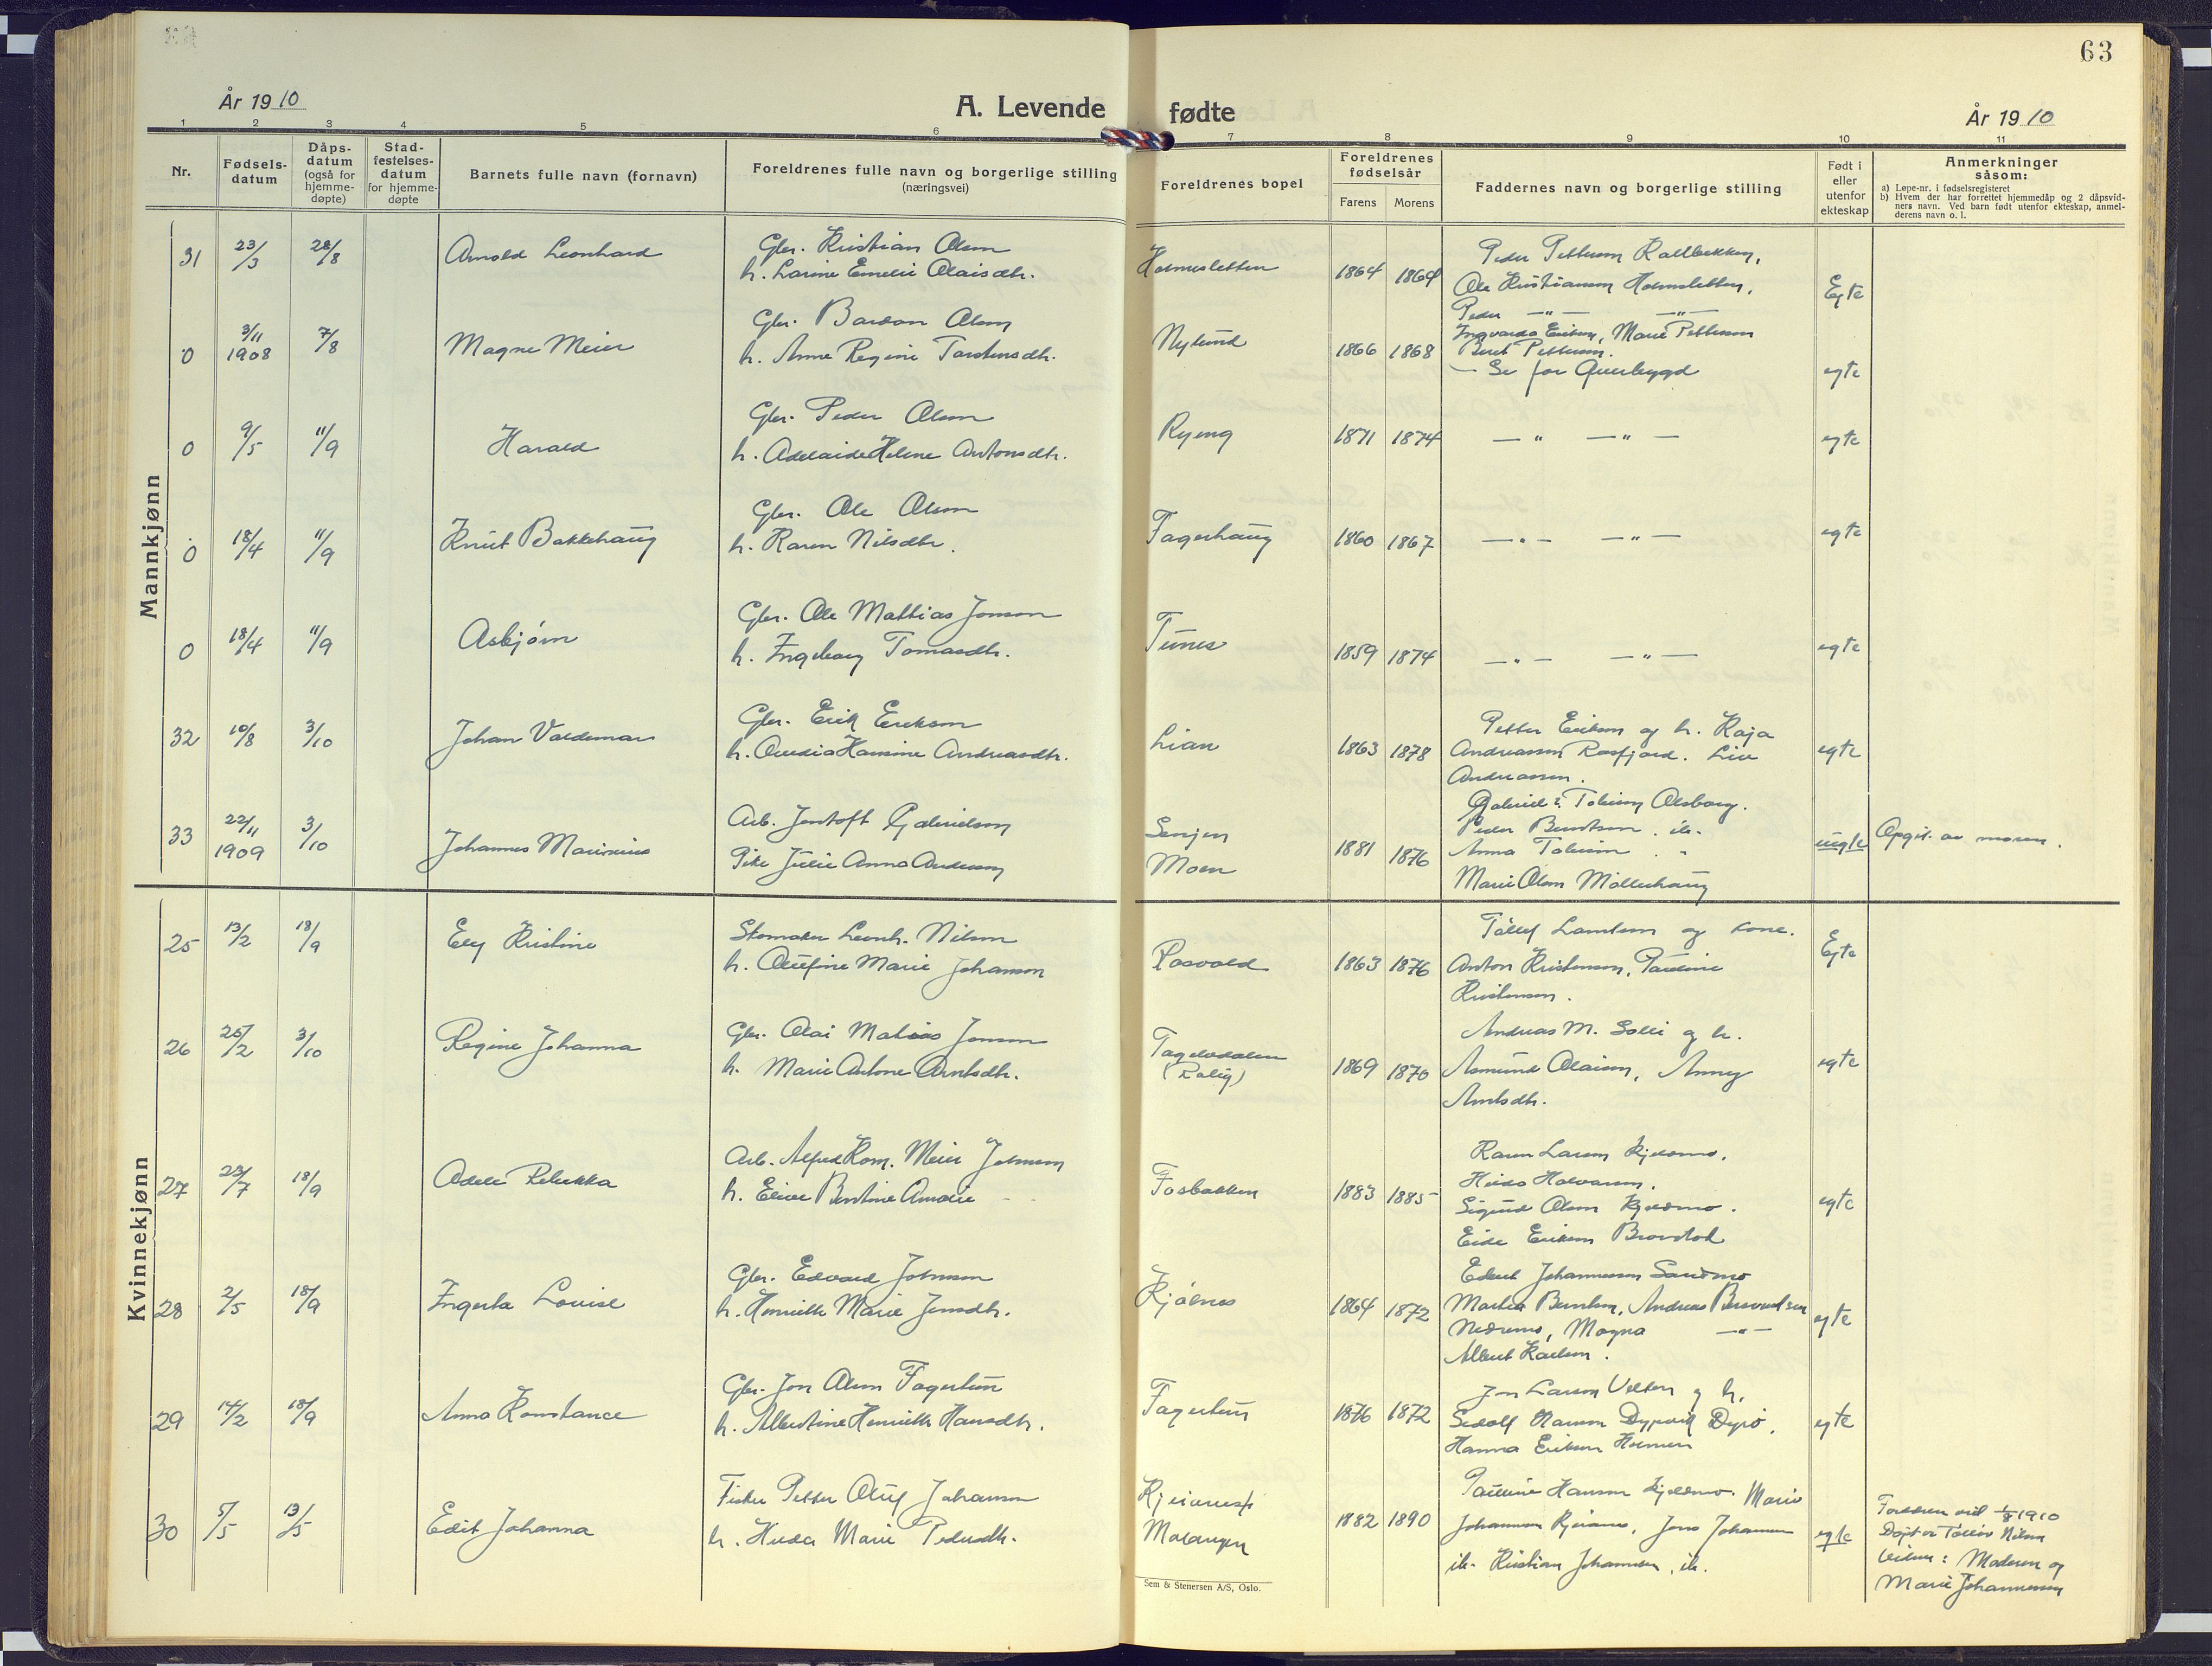 63
År 1910
A. Levende fødte
År 1910
1 2 3 4 5 6 7 8 9 10 11
Nr.
Fødsels-
datum
Dåps-
datum
(også for
hjemme-
døpte)
Stad-
festelses-
datum
for hjemme-
døpte
Barnets fulle navn (fornavn)
Foreldrenes fulle navn og borgerlige stilling
(næringsvei)
Foreldrenes bopel
Foreldrenes
fødselsår
Farens Morens
Faddernes navn og borgerlige stilling
Født i
eller
utenfor
ekteskap
Anmerkninger
såsom:
a) Løpe-nr. i fødselsregisteret
b) Hvem der har forrettet hjemmedåp og 2 dåpsvid-
ners navn. Ved barn født utenfor ekteskap, anmel-
derens navn o. l.
Mannkjønn
31 23/3 28/8 Arnold Leonhard
Gbr. Kristian Olsen
h. Larine Emelie Olaisdtr.
Holmesletten 1864 1864
Peder Pettersen
Ole Kristiansen Holmesletten,
Peder —"— —"—
Ingvarda Eriksen, Marie Pettersen
Berit Pettersen.
Egte
0 3/11 1908 7/8 Magne Meier
Gbr. Bardon Olsen
h. Anne Regine Torstensdtr.
Nylund 1866 1868
— Se for Øverbygd
egte
0 9/5 11/9 Harald
Gbr. Peder Olsen
h. Adelaide Helene Antonsdtr.
Ryeng 1871 1874
—"— —"—
egte
0 18/4 11/9 Knut Bakkehaug
Gbr. Ole Olsen
h. Karen Nilsdtr.
Fagerhaug 1860 1867
—"— —"—
egte
0 18/4 11/9 Asbjørn
Gbr. Ole Mathias Jonsen
h. Ingeborg Tomasdtr.
Tunes 1859 1874
—"— —"—
egte
32 10/8 3/10 Johan Valdemar
Gbr. Erik Eriksen
h. Ovedia Hansine Andreasdtr.
Lian 1863 1878
Petter Eriksen og h. Kaja
Andreassen Rossfjord. Live
Andreassen.
egte
33 22/11 1909 3/10 Johannes Marinius
Arb. Jentoft Gabrielsen
Pike Julie Anna Andersen
Senjen
Moen
1881 1876
Gabriel Tobiesen Olsborg.
Peder Berntsen. ib.
Anna Tobiesen. "
Marie Olsen Møllerhaug
uegte
Opgit. av moren.
Kvinnekjønn
25 13/2 18/9 Elly Kristine
Skomaker Leonh. Nilsen
h. Olufine Marie Johansen
Rosvold 1863 1876
Tollef Lambersen og kone.
Anton Kristensen, Pauline
Kristensen.
Egte
26 25/2 3/10 Regine Johanna
Gbr. Olai Matias Jonsen
h. Marie Antone Arntsdtr.
Tagelvdalen
1869 1870
Andreas M. Solli og h.
Asmund Olaisen, Anny
Arntsdtr.
egte
27 23/7 18/9 Adele Rebekka
Arb. Alfred Kom. Meier Johnsen
h. Elise Bentine Amalie
Fosbakken 1883 1885
Karen Larsen Kjeldmo.
Hilda Halvorsen.
Sigurd Olsen Kjeldmo.
Eide Eriksen
egte
28 2/5 18/9 Ingerta Louise
Gbr. Edvard Johnsen
h. Henriette Marie Jensdtr.
Kjølnes 1864 1872
Edert Johannessen Sandmo
Martha Berntsen, Andreas
Nedremo, Magna —"—
Albert Karlsen.
egte
29 14/2 18/9 Anna Konstance
Gbr. Jon Olsen Fagertun
h. Albertine Henriette Hansdtr.
Fagertun 1876 1872
Jon Larsen Velten og h.
Sedolf Hansen Dypvik Dyrø,
Hanna Eriksen Holmen
egte
30 5/5 13/5 Edit Johanna
Fisker Petter Oluf Johansen
h. Hilda Marie Pedersdtr.
Malangen
1882 1890
Pauline Hansen Kjeldmo. Marie
Johannessen, Jens Johansen
ib. Kristian Johansen, ib.
egte
Foreldren vid 1910
Døpt av Nilsen
Vidner: Moderen og
Marie Johannessen
Sem & Stenersen A/S, Oslo.